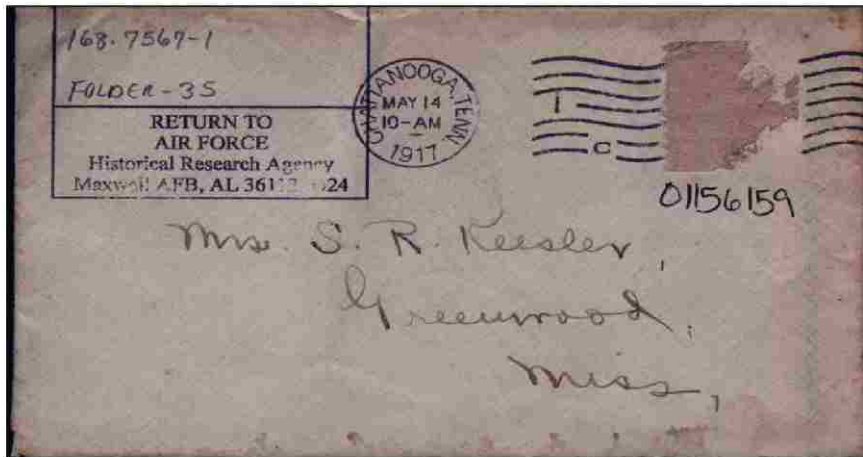 168.7567-1
FOLDER-35
RETURN TO
AIR FORCE
Historical Research Agency
Maxwell AFB, AL 36112 6424
CHATTANOOGA, TENN
MAY 14
10-AM
1917
1
C
01156159
Mrs. S. R. Keesler,
Greenwood,
Miss,